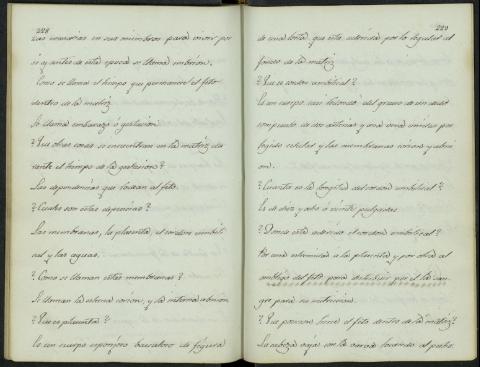 228
las necesarias en sus miembros para vivir por
si y antes de esta epoca se llama embrion.
Como se llama el tiempo que permanece el feto
dentro de la matriz
Se llama embarazo ó gestacion
? Que otras cosas se encuentran en la matriz du
rante el tiempo de la gestacion?
Las dependencias que rodean al feto.
? Cuales son estas depencias?
Las membranas, la placenta, el cordon umbili
cal y las aguas.
? Como se llaman estas membranas?
Se llaman la esterna corion, y la interna amnion
? Que es placenta?
Es un cuerpo esponjoso vascular de figura
229
de una torta, que está adherida por lo regular al
fondo de la matriz
? Que es cordon umbilical?
Es un cuerpo casi redondo del grueso de un dedo
compuesto de dos arterias y una vena unidas por
tegido celular y las membranas corion y amni
on.
? Cuanta es la longitud del cordon umbilical?
Es de diez y ocho á veinte pulgadas
? Donde está adherido el cordon umbilical?
Por una estremidad á la placenta y por otra al
ombligo del feto para distribuir por el la san
gre para su nutricion.
? Que posicion tiene el feto dentro de la matriz?
La cabeza baja con la barba tocando al pecho.